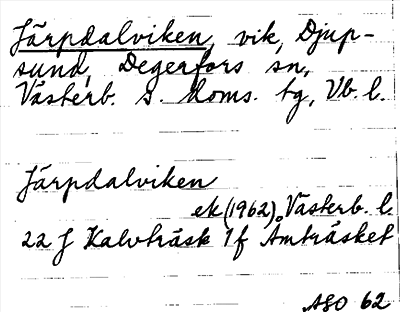 Järpdalviken, vik, Djup-
sund, Degerfors sn,
Västerb. s. doms. tg, Vb. l.
Järpdalviken
ek (1962). Västerb. l.
22 J Kalvträsk 1 f Amträsket
ASO 62